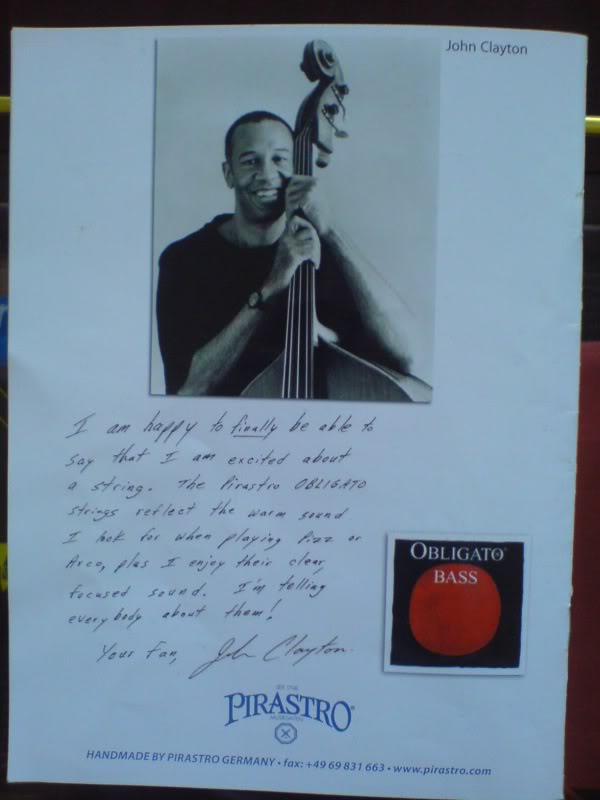 John Clayton
I am happy to finally be able to
say that I am excited about
a string. The Pirastro OBLIGATO
strings reflect the warm sound
I look for when playing Pizz or
Arco, plus I enjoy their clear,
focused sound. I'm telling
everybody about them!
Your Fan, John Clayton
OBLIGATO®
BASS
PIRASTRO®
HANDMADE BY PIRASTRO GERMANY • fax: +49 69 831 663 • www.pirastro.com